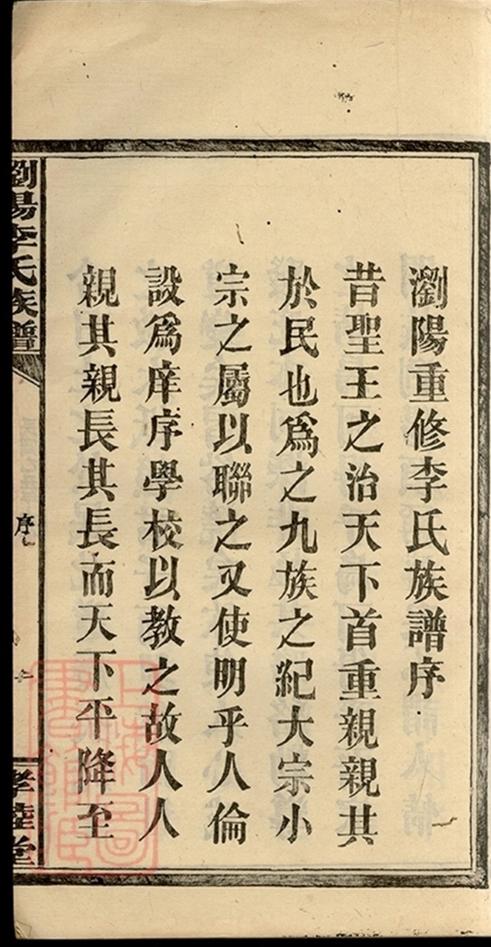 瀏陽重修李氏族譜序
昔聖王之治天下首重親親其
於民也爲之九族之紀大宗小
宗之屬以聯之又使明乎人倫
設爲庠序學校以教之故人人
親其親長其長而天下平降至
瀏陽李氏族譜
序
孝睦堂